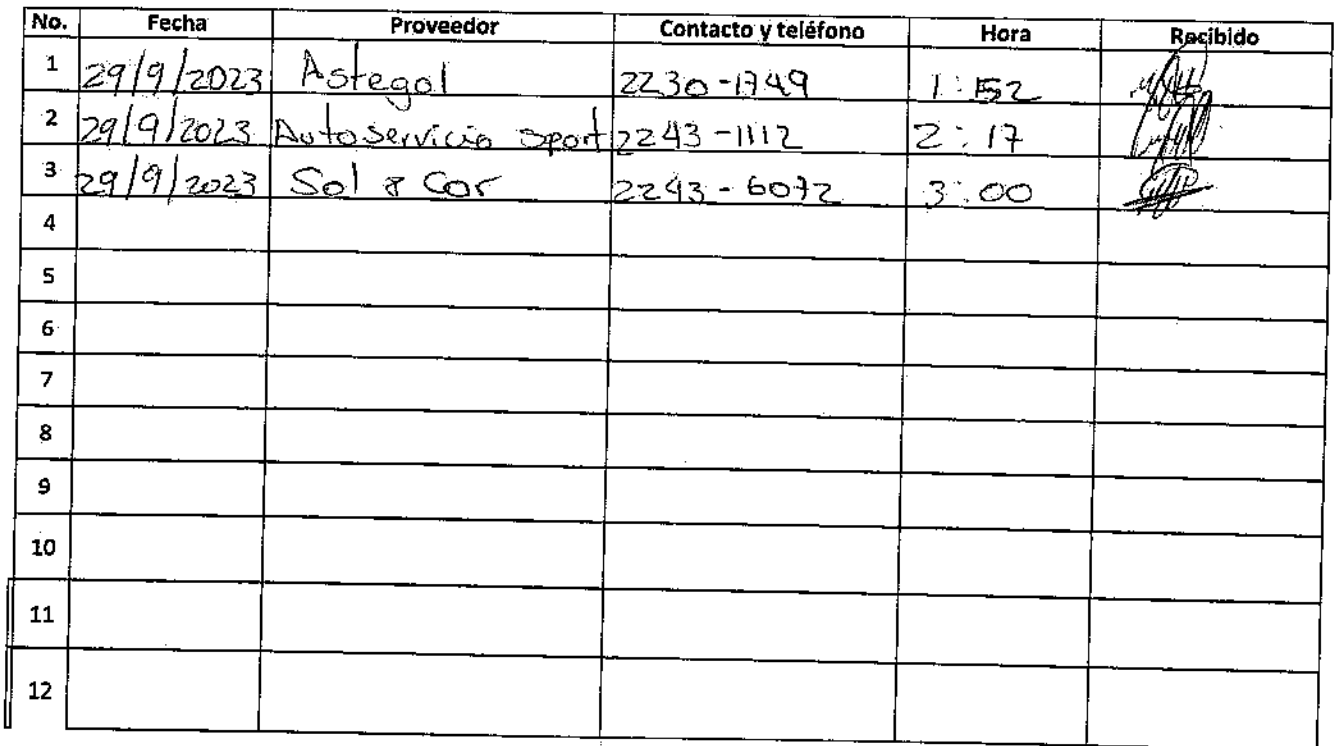 No. Fecha Proveedor Contacto y teléfono Hora Recibido
1 29/9/2023 Astegol 2230-1749 1:52
2 29/9/2023 Autoservicio sport 2243-1112 2:17
3 29/9/2023 Sol & Car 2243-6072 3:00
4
5
6
7
8
9
10
11
12